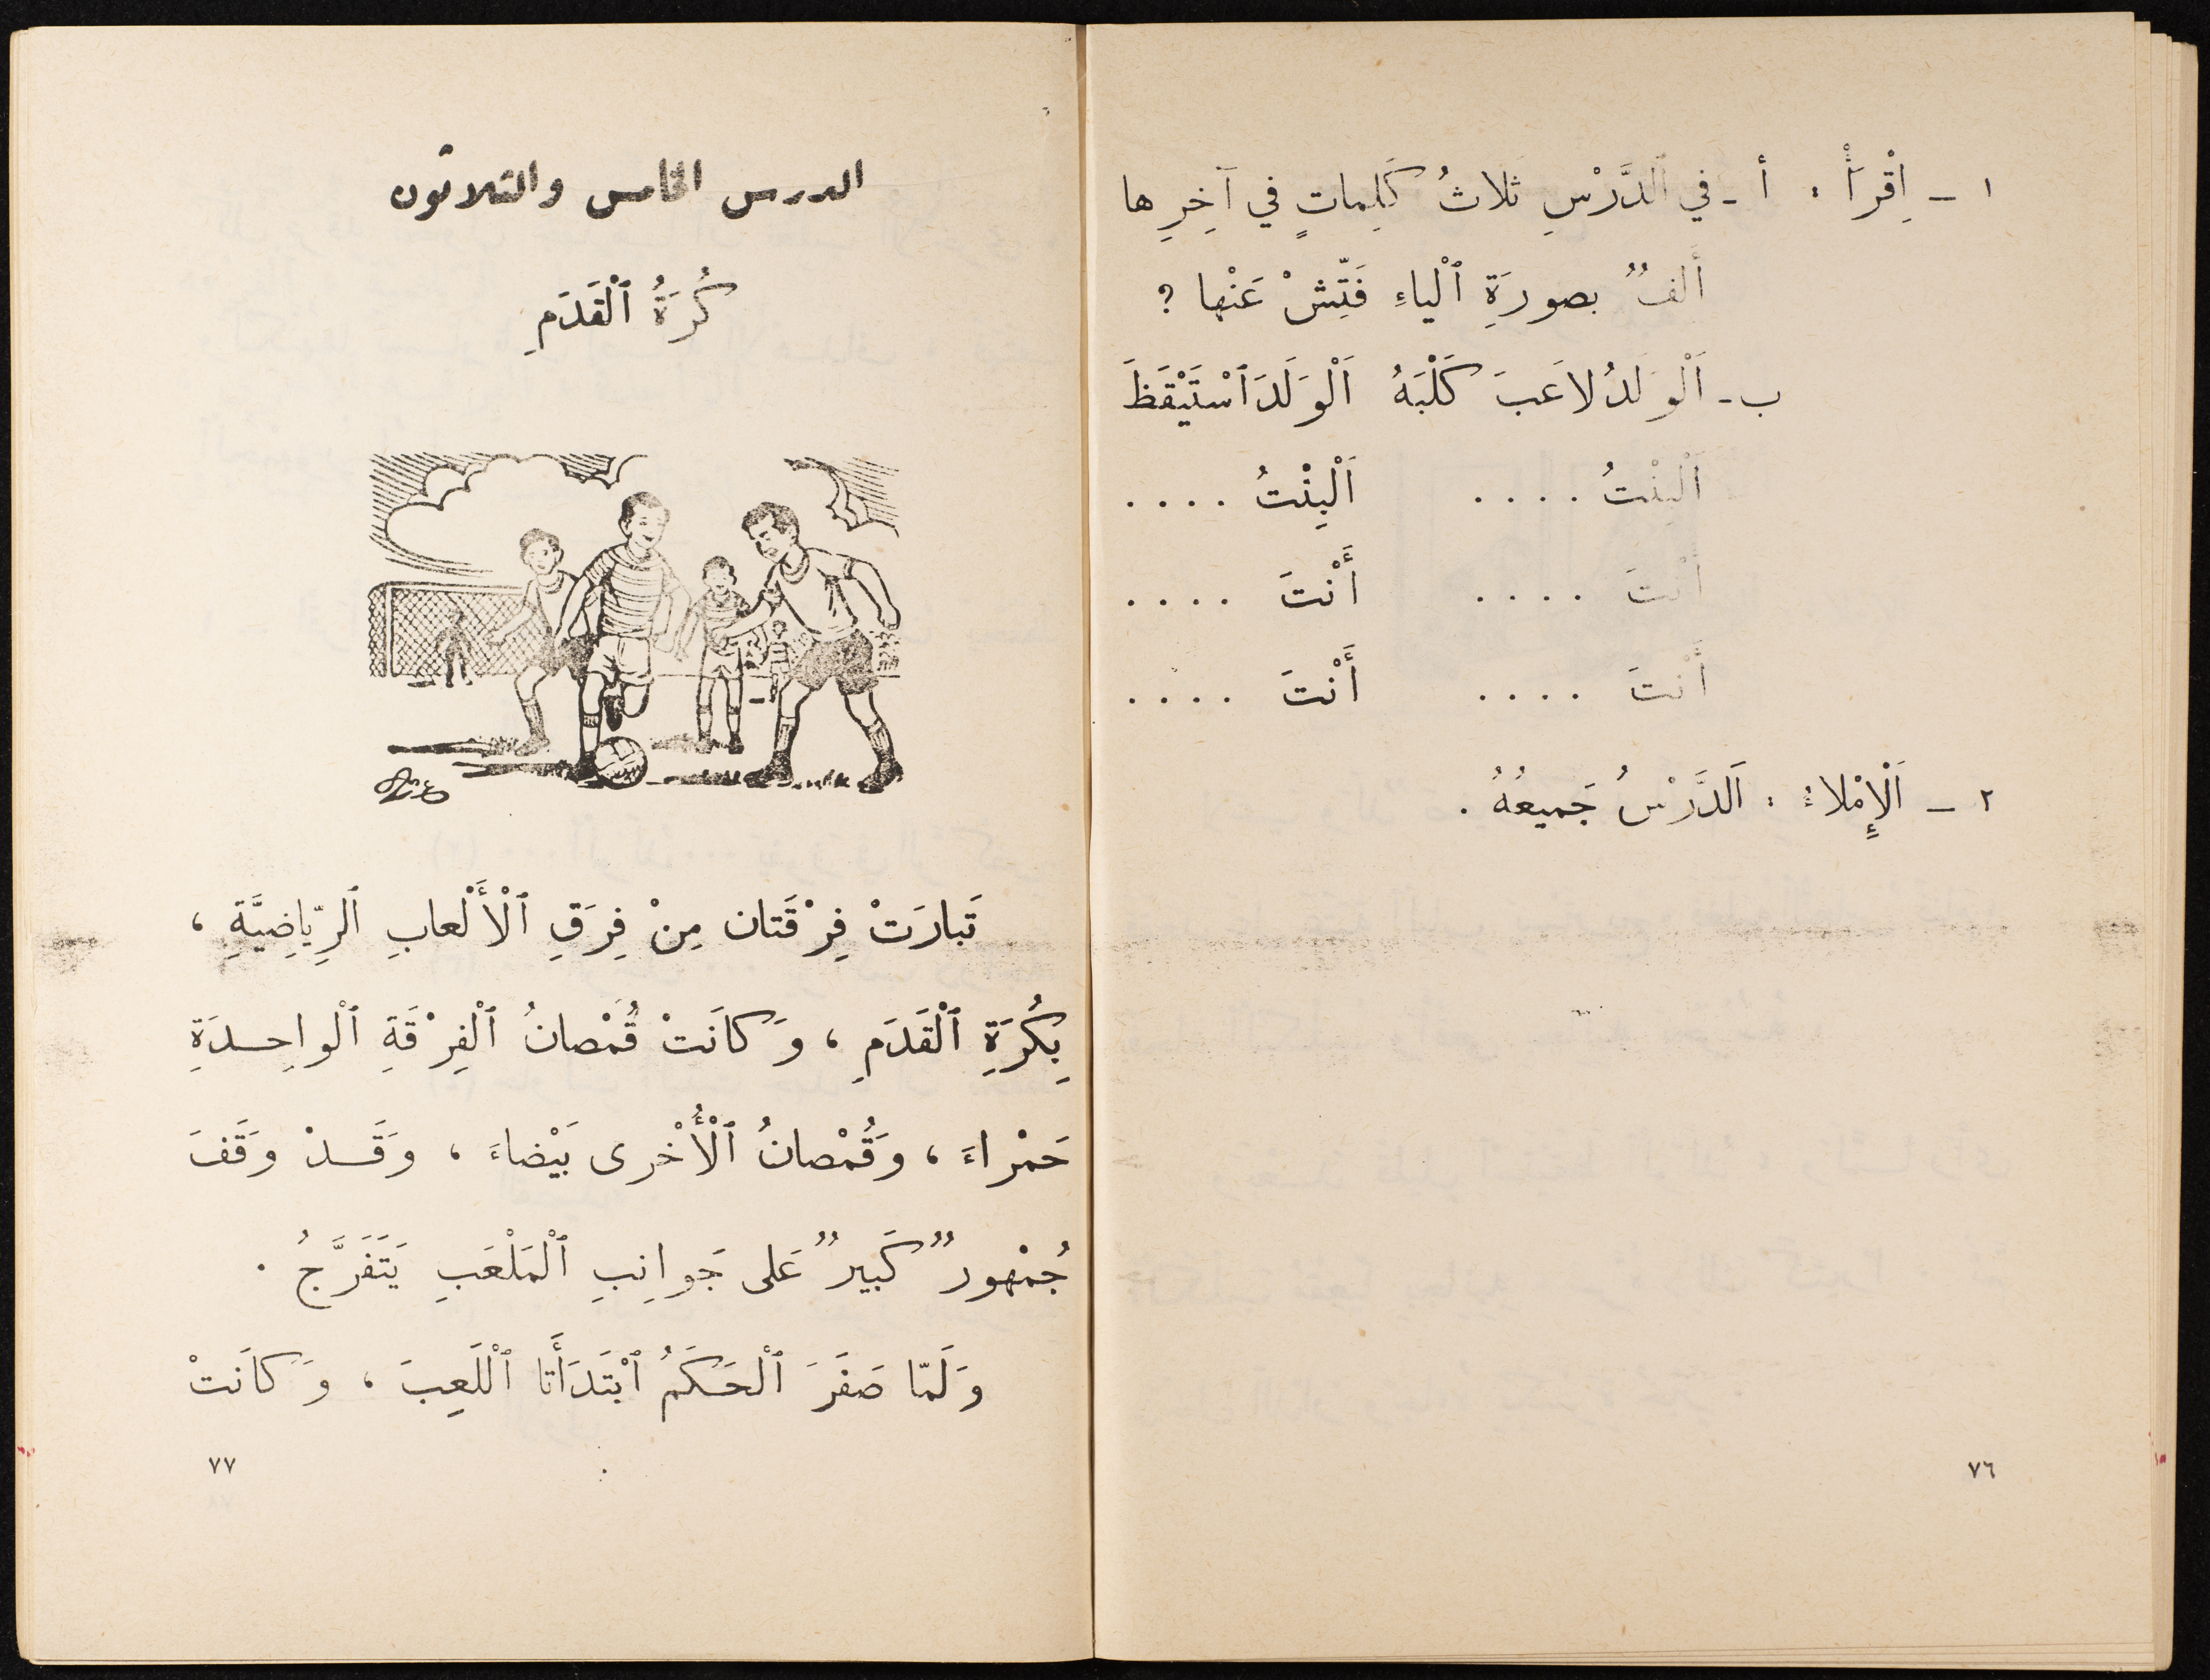 ١ ــ اِقْرَأْ : أ ـ في ٱلدَّرْسِ ثَلاثُ كَلِماتٍ في آخِرِها
أَلفٌ بصورَةِ ٱلْياءِ فَتِّشْ عَنْها ؟
ب ـ اَلْوَلَدُ لاعَبَ كَلْبَهُ اَلْوَلَدَ ٱسْتَيْقَظَ
اَلْبِنْتُ . . . . اَلْبِنْتُ . . . .
أَنْتَ . . . . أَنْتَ . . . .
أَنْتَ . . . . أَنْتَ . . . .
٢ ــ اَلْإِمْلاءُ : اَلدَّرْسُ جَميعُهُ .
٧٦
الدرس الخامس والثلاثون
كُرَةُ ٱلْقَدَمِ
تَبارَتْ فِرْقَتان مِنْ فِرَقِ ٱلْأَلْعابِ ٱلرِّياضِيَّةِ ،
بِكُرَةِ ٱلْقَدَمِ ، وَكانَتْ قُمْصانُ ٱلْفِرْقَةِ ٱلْواحِدَةِ
حَمْراءَ ، وَقُمْصانُ ٱلْأُخْرى بَيْضاءَ ، وَقَدْ وَقَفَ
جُمْهورٌ كَبيرٌ عَلى جَوانِبِ ٱلْمَلْعَبِ يَتَفَرَّجُ .
وَلَمّا صَفَرَ ٱلْحَكَمُ ٱبْتَدَأَتا ٱلْلَعِبَ ، وَكانَتْ
٧٧